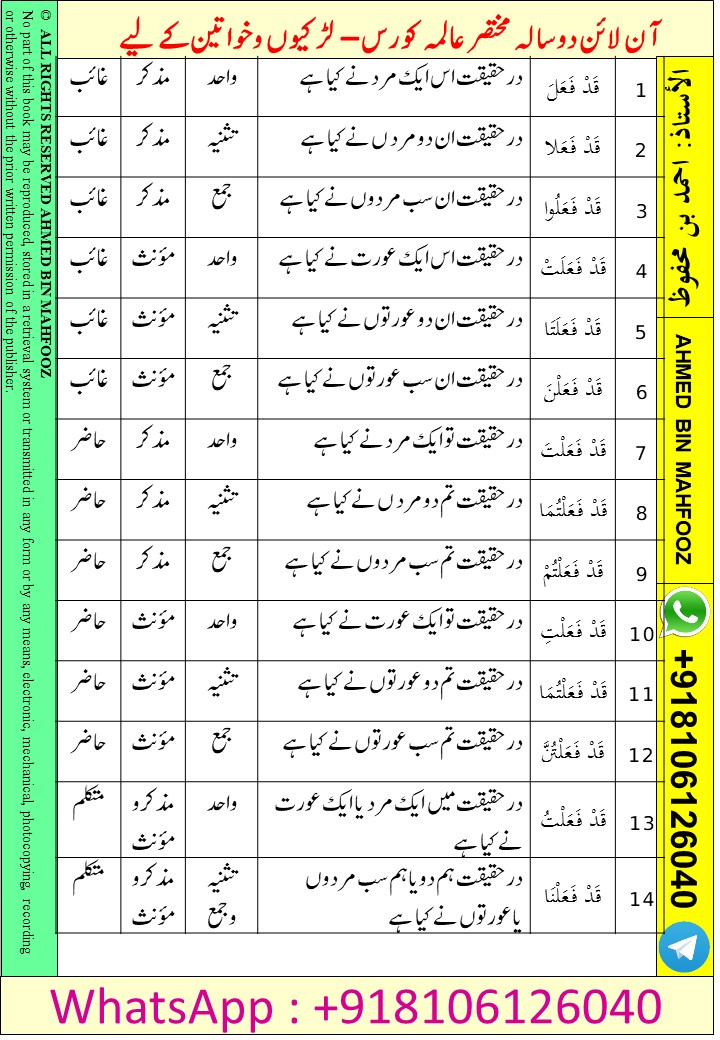 آن لائن دو سالہ مختصر عالمہ کورس – لڑکیوں و خواتین کے لیے
1 قَدْ فَعَلَ در حقیقت اس ایک مرد نے کیا ہے واحد مذکر غائب
2 قَدْ فَعَلا در حقیقت ان دو مردں نے کیا ہے تثنیہ مذکر غائب
3 قَدْ فَعَلُوا در حقیقت ان سب مردوں نے کیا ہے جمع مذکر غائب
4 قَدْ فَعَلَتْ در حقیقت اس ایک عورت نے کیا ہے واحد مؤنث غائب
5 قَدْ فَعَلَتَا در حقیقت ان دو عورتوں نے کیا ہے تثنیہ مؤنث غائب
6 قَدْ فَعَلْنَ در حقیقت ان سب عورتوں نے کیا ہے جمع مؤنث غائب
7 قَدْ فَعَلْتَ در حقیقت تو ایک مرد نے کیا ہے واحد مذکر حاضر
8 قَدْ فَعَلْتُمَا در حقیقت تم دو مردں نے کیا ہے تثنیہ مذکر حاضر
9 قَدْ فَعَلْتُمْ در حقیقت تم سب مردوں نے کیا ہے جمع مذکر حاضر
10 قَدْ فَعَلْتِ در حقیقت تو ایک عورت نے کیا ہے واحد مؤنث حاضر
11 قَدْ فَعَلْتُمَا در حقیقت تم دو عورتوں نے کیا ہے تثنیہ مؤنث حاضر
12 قَدْ فَعَلْتُنَّ در حقیقت تم سب عورتوں نے کیا ہے جمع مؤنث حاضر
13 قَدْ فَعَلْتُ در حقیقت میں ایک مرد یا ایک عورت واحد مذکر و متکلم
نے کیا ہے مؤنث
14 قَدْ فَعَلْنَا در حقیقت ہم دو یا ہم سب مردوں تثنیہ مذکر و متکلم
یا عورتوں نے کیا ہے و جمع مؤنث
الأستاذ: احمد بن محفوظ
AHMED BIN MAHFOOZ
+918106126040
© ALL RIGHTS RESERVED AHMED BIN MAHFOOZ
No part of this book may be reproduced, stored in a retrieval system or transmitted in any form or by any means, electronic, mechanical, photocopying, recording
or otherwise without the prior written permission of the publisher.
WhatsApp : +918106126040